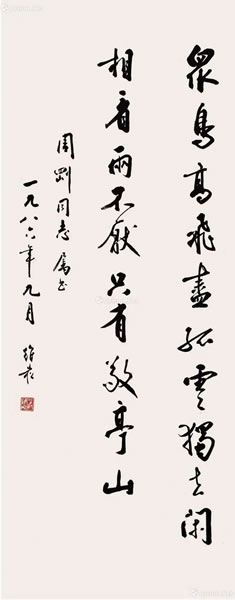 眾鳥高飛盡孤雲獨去閑
相看兩不厭只有敬亭山
周剛同志属书
一九八六年九月